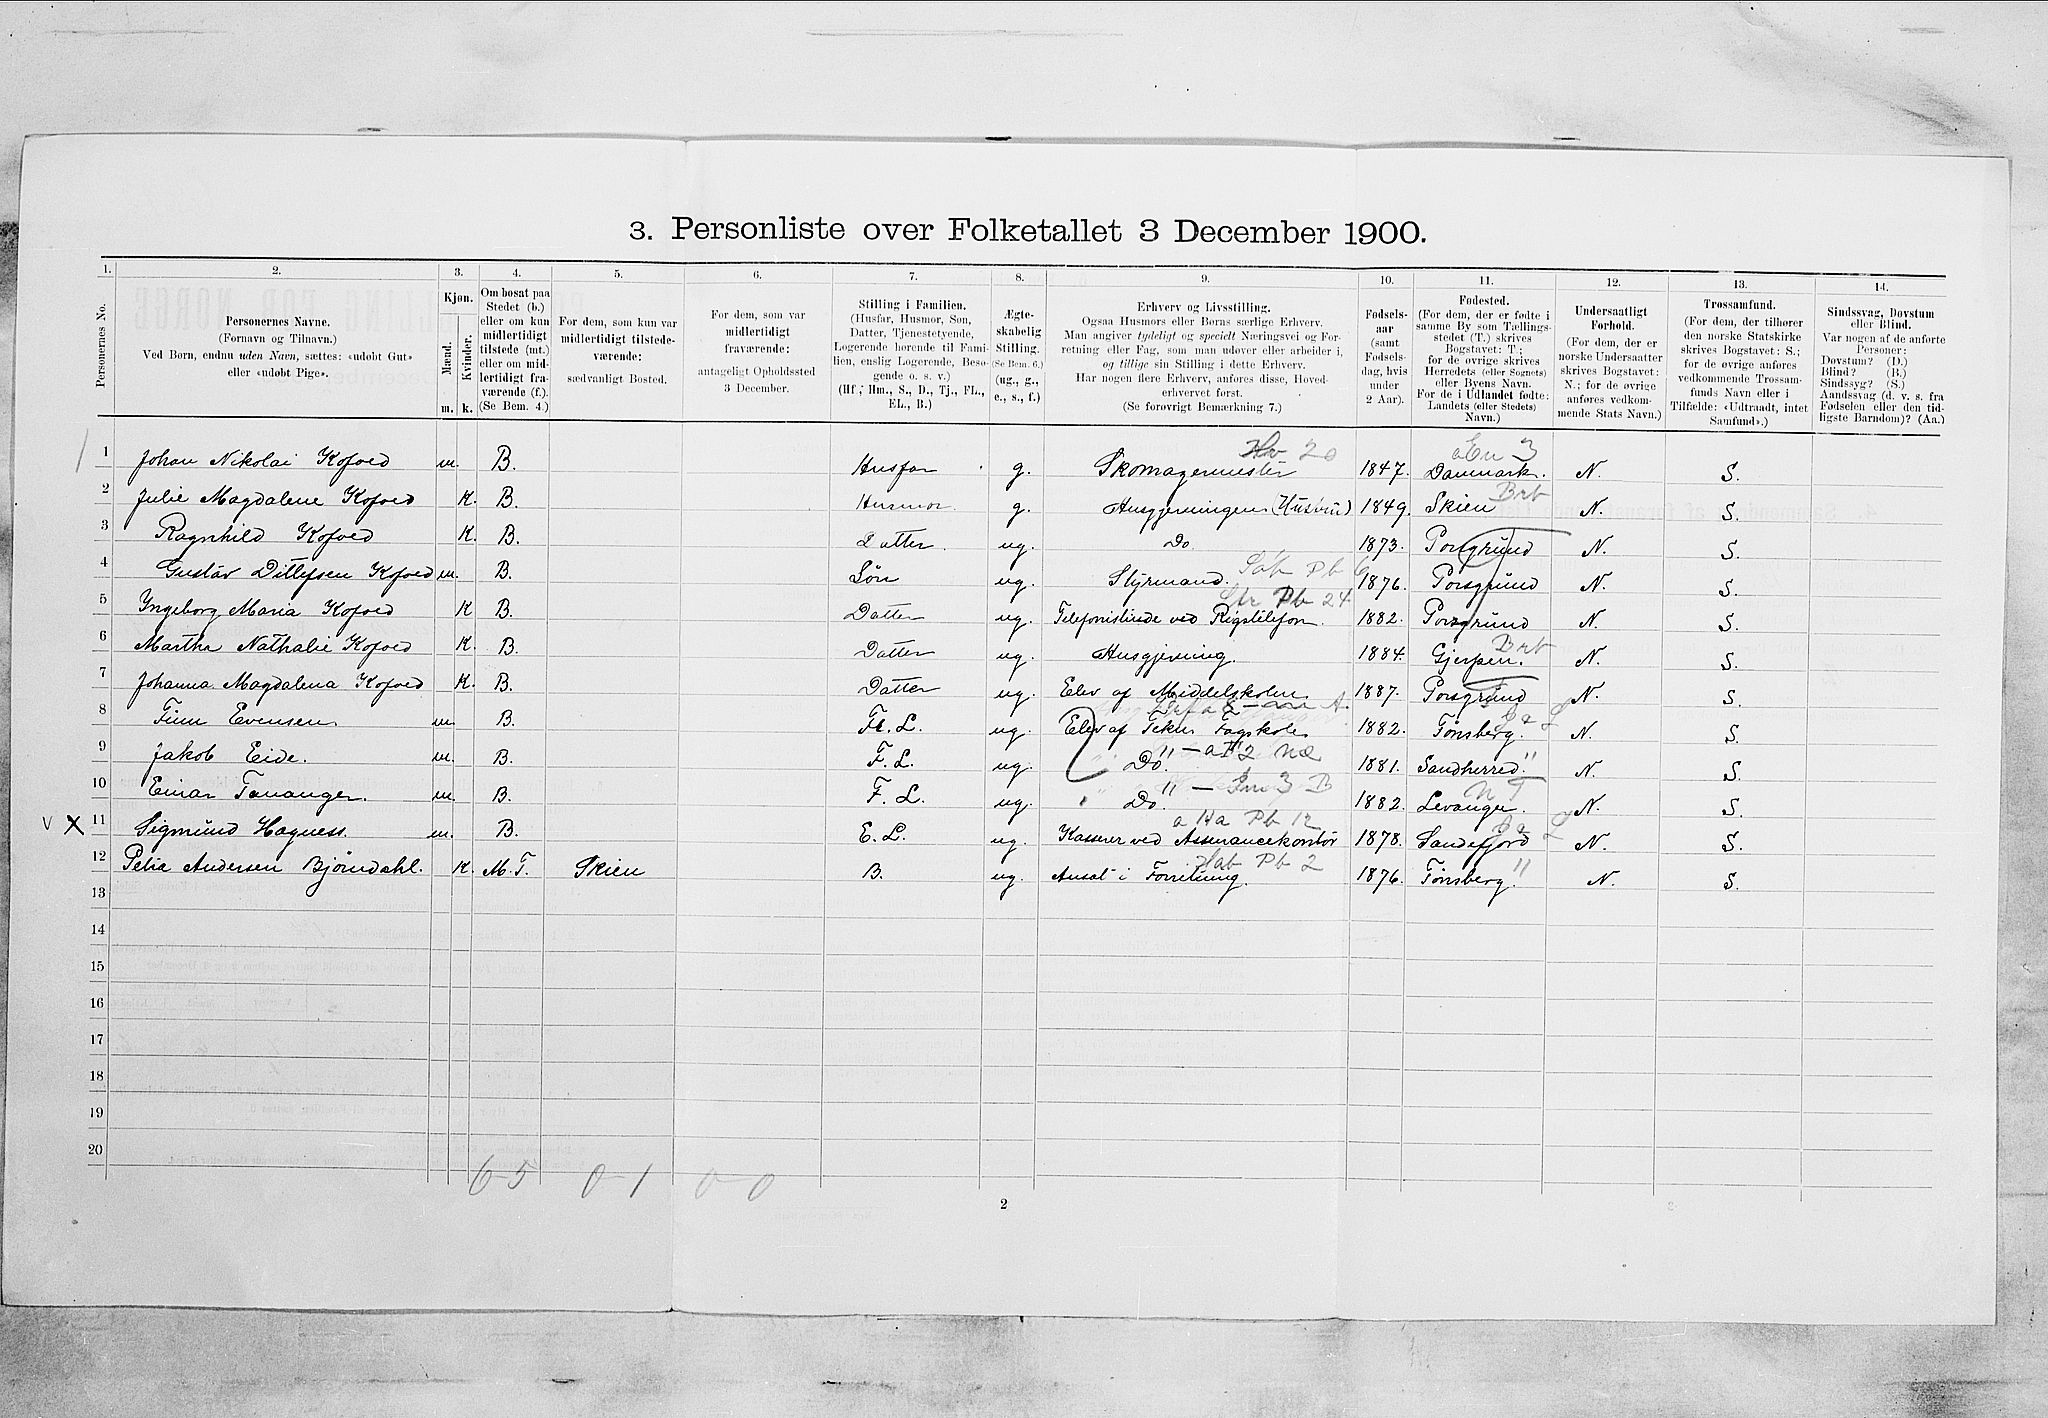 3. Personliste over Folketallet 3 December 1900.
1. 2. 3. 4. 5. 6. 7. 8. 9. 10. 11. 12. 13. 14.
Personernes No.
Personernes Navne.
(Fornavn og Tilnavn.)
Ved Børn, endnu uden Navn, sættes: «udøbt Gut»
eller «udøbt Pige».
Kjøn.
Mænd. Kvinder.
m. k.
Om bosat paa
Stedet (b.)
eller om kun
midlertidigt
tilstede (mt.)
eller om mid-
lertidigt fra-
værende (f.).
(Se Bem. 4.)
For dem, som kun var
midlertidigt tilstede-
værende:
sædvanligt Bosted.
For dem, som var
midlertidigt
fraværende:
antageligt Opholdssted
3 December.
Stilling i Familien.
(Husfar, Husmor, Søn,
Datter, Tjenestetyende,
Logerende hørende til Fami-
lien, enslig Logerende, Besø-
gende o. s. v.)
(Hf., Hm., S., D., Tj., FL.,
EL., B.)
Ægte-
skabelig
Stilling.
(Se Bem. 6.)
(ug., g.,
e., s., f.)
Erhverv og Livsstilling.
Ogsaa Husmors eller Børns særlige Erhverv.
Man angiver tydeligt og specielt Næringsvei og For-
retning eller Fag, som man udøver eller arbeider i,
og tillige sin Stilling i dette Erhverv.
Har nogen flere Erhverv, anføres disse, Hoved-
erhvervet først.
(Se forøvrigt Bemærkning 7.)
Fødsels-
aar
(samt
Fødsels-
dag, hvis
under
2 Aar).
Fødested.
(For dem, der er fødte i
samme By som Tællings-
stedet (T.) skrives
Bogstavet: T;
for de øvrige skrives
Herredets (eller Sognets)
eller Byens Navn.
For de i Udlandet fødte:
Landets (eller Stedets)
Navn.)
Undersaatligt
Forhold.
(For dem, der er
norske Undersaatter
skrives Bogstavet:
N.; for de øvrige
anføres vedkom-
mende Stats Navn.)
Trossamfund.
(For dem, der tilhører
den norske Statskirke
skrives Bogstavet: S.;
for de øvrige anføres
vedkommende Trossam-
funds Navn eller i
Tilfælde: «Udtraadt, intet
Samfund».)
Sindssvag, Døvstum
eller Blind.
Var nogen af de anførte
Personer:
Døvstum? (D.)
Blind? (B.)
Sindssyg? (S.)
Aandssvag (d. v. s. fra
Fødselen eller den tid-
ligste Barndom)? (Aa.)
1 Johan Nikolai Kofoed m. B. Husfar g. Skomagermester 1847. Danmark. N. S.
2 Julie Magdalene Kofoed K. B. Husmor g. Husgjerningen (Hustru) 1849. Skien N. S.
3 Ragnhild Kofoed K. B. Datter. ug. Do 1873. Porsgrund N. S.
4 Gustav Ditlefsen Kofoed m. B. Søn ug. Styrmand. 1876. Porsgrund N. S.
5 Yngeborg Maria Kofoed K B. Datter ug. Telefonistinde ved Rigstelefon. 1882. Porsgrund N. S.
6 Martha Nathalie Kofoed K. B. Datter ug. Husgjerning. 1884. Gjerpen. N. S.
7 Johanna Magdalena Kofoed K. B. Datter ug. Elev af Middelskolen 1887. Porsgrund N. S.
8 Finn Evensen m. B. F. L. ug. Elev af Tekn Fagskole 1882. Tønsberg. N. S.
9 Jakob Eide. m. B. F. L. ug. Do. 1881. Sandherred. N. S.
10 Einar Tananger. m. B. F. L. ug. Do. 1882. Levanger. N. S.
V X 11 Sigmund Hagness. m. B. E. L. ug. Kasserer ved Assurancekontor 1878. Sandefjord N. S.
12 Petra Andersen Bjørndahl. K. M. T. Skien B. ug. Ansat i Forretning. 1876. Tønsberg. N. S.
13
14
15
16
17
18
19
20
6-5 0-1 0-0
2